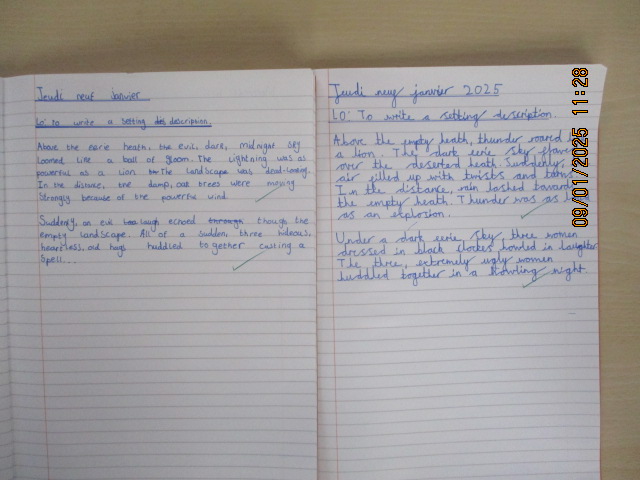 Jeudi neuf Janvier
LO: To write a setting description.
Above the eerie heath, the evil, dark, midnight sky
Loomed Like a ball of gloom. The Lightning was as
powerful as a Lion. The Landscape was dead-Looking.
In the distance, the damp, oak trees were moving
Strongly because of the powerful wind.
Suddenly, an evil echoed though the
empty Landscape. All of a sudden, three hideous,
heartless, old hags huddled together casting a
Spell.
Jeudi neuf janvier 2025
LO: To write a setting description.
Above the empty heath, thunder roared
a lion. The dark eerie sky
over the deserted heath. Suddenly,
air filled up with twists and
In the distance, rain lashed toward
the empty heath. Thunder was as
as an explosion.
Under a dark eerie sky three women
dressed in black clockes howled in laughter.
The three, extremely ugly women
huddled together in a howling night.
09/01/2025 11:28